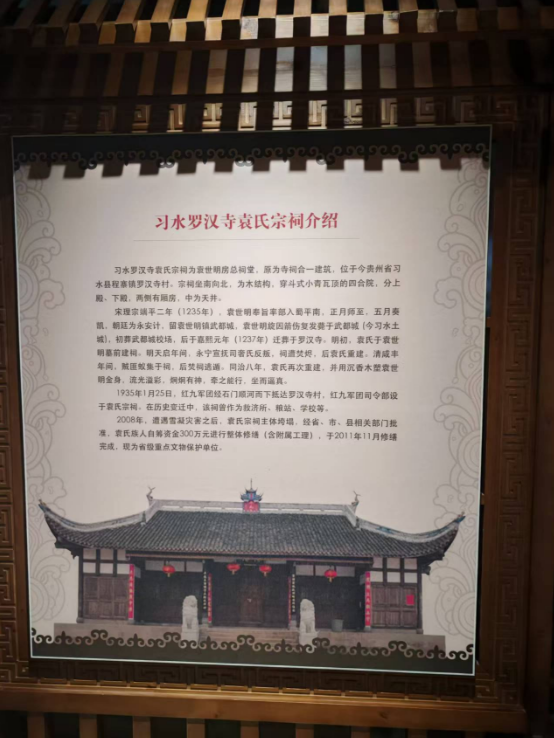 习水罗汉寺袁氏宗祠介绍
习水罗汉寺袁氏宗祠为袁世明房总祠堂，原为寺祠合一建筑，位于今贵州省习
水县程寨镇罗汉寺村，宗祠坐南向北，为木结构，穿斗式小青瓦顶的四合院，分上
殿、下殿，两侧有厢房，中为天井。
宋理宗端平二年（1235年），袁世明奉旨率部入蜀平南，正月师至，五月奏
凯，朝廷为永安计，留袁世明镇武都城，袁世明旋因箭伤复发薨于武都城（今习水土
城），初葬武都城校场，后于嘉熙元年（1237年）迁葬于罗汉寺。明初，袁氏于袁世
明墓前建祠。明天启年间，永宁宣抚司奢氏反叛，祠遭焚烬，后袁氏重建。清咸丰
年间，贼匪蚁集于祠，后焚祠逃遁。同治八年，袁氏再次重建，并用沉香木塑袁世
明金身，流光溢彩，炯炯有神，牵之能行，坐而逼真。
1935年1月25日，红九军团经石门顺河而下抵达罗汉寺村，红九军团司令部设
于袁氏宗祠。在历史变迁中，该祠曾作为救济所、粮站、学校等。
2008年，遭遇雪凝灾害之后，袁氏宗祠主体垮塌，经省、市、县相关部门批
准，袁氏族人自筹资金300万元进行整体修缮（含附属工理），于2011年11月修缮
完成，现为省级重点文物保护单位。